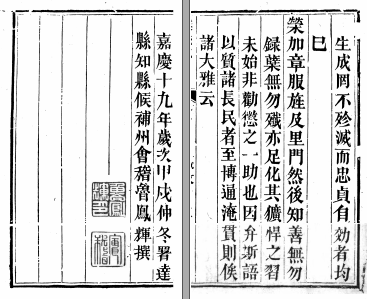 生成罔不殄滅而忠貞自効者均
巳
榮加章服旌及里門然後知善無勿
録蘖無勿殲亦足化其獷悍之習
未始非勸懲之一助也因弁斯語
以質諸長民者至博通淹貫則俟
諸大雅云
嘉慶十九年歲次甲戌仲冬署達
縣知縣候補州會稽魯鳳輝撰